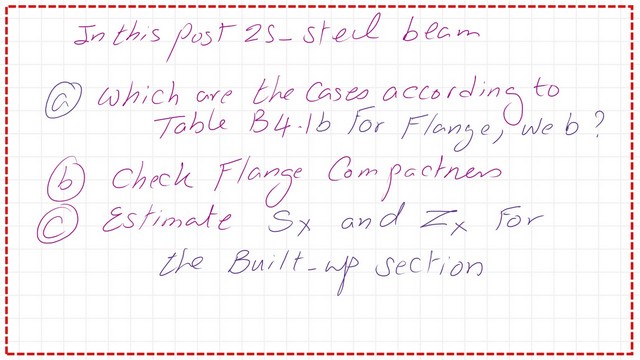 In this post 25_steel beam
(a) which are the Cases according to
Table B4.1b For Flange, web?
(b) check Flange Compactness
(c) Estimate Sx and Zx For
the Built-up section